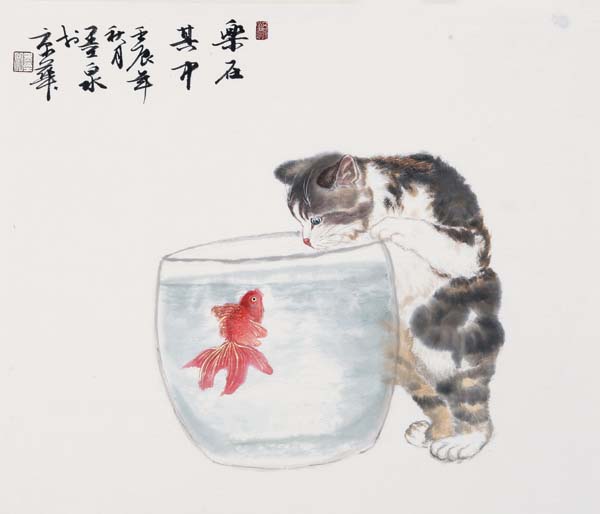 樂在
其中
壬辰年
秋月
泉
於
京華